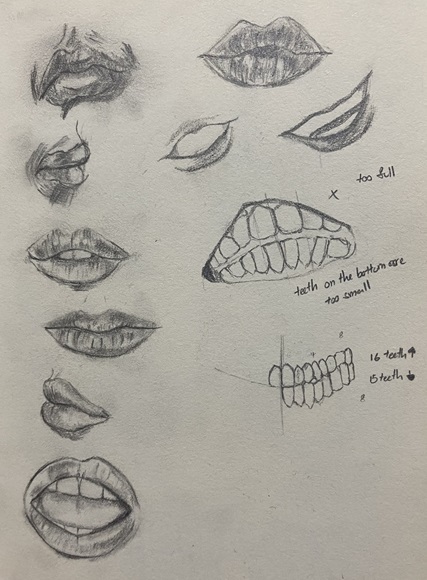 too full
x
teeth on the bottom are
too small
16 teeth ↑
15 teeth ↓